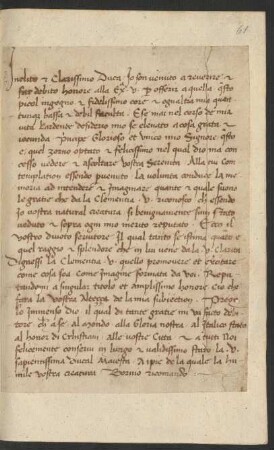 61
Inclito & Clarissimo Duca Io son venuto a reverire &
far debito honore alla Ex. V. p offerir a quella qsto
picol ingegno & fidelissimo core & ogni altra mia quat
bassa & debil faculta E se mai nel corso de mia
vita Lardente desiderio mio se elevato a cosa grata &
iocunda Principe Glorioso et unico mio Signore qsto
e quel zorno optato & felicissimo nel qual dio ma con
cesso vedere & ascoltare vostra Serenita Alla cui con
templation essendo pvenuto La volunta conduce la me
moria ad intendere & Imaginare quante & quale siano
le gratie che da la Clementia V. riconosco chi essendo
Io vostra natural creatura si benignamente sum stato
veduto & sopra ogni mio merito reputato Ecco il
vostro Divoto servitore Il qual tanto se stima quare e
quel raggio & splendore che in lui viene da la V. Claritá
Dignessi la Clementia V. quello promovere et exaltare
come cosa sua Come imagine formata da voi Repu
tandomi a singular titolo et amplissimo honore Cio che
fara la Vostra Alteza de la mia subiection Prego
lo Immenso Dio il qual di tante gratie mi va facto de
tore chi a se Al mondo alla Gloria nostra al Italico stato
al honor di Cristiani alle vostre Citta & a tuti Noi
felicemente conservi in longo & validissimo stato la V.
sapientissima Ducal Maiesta A i pie de la quale la hu
mile vostra creatura Bornio recomando